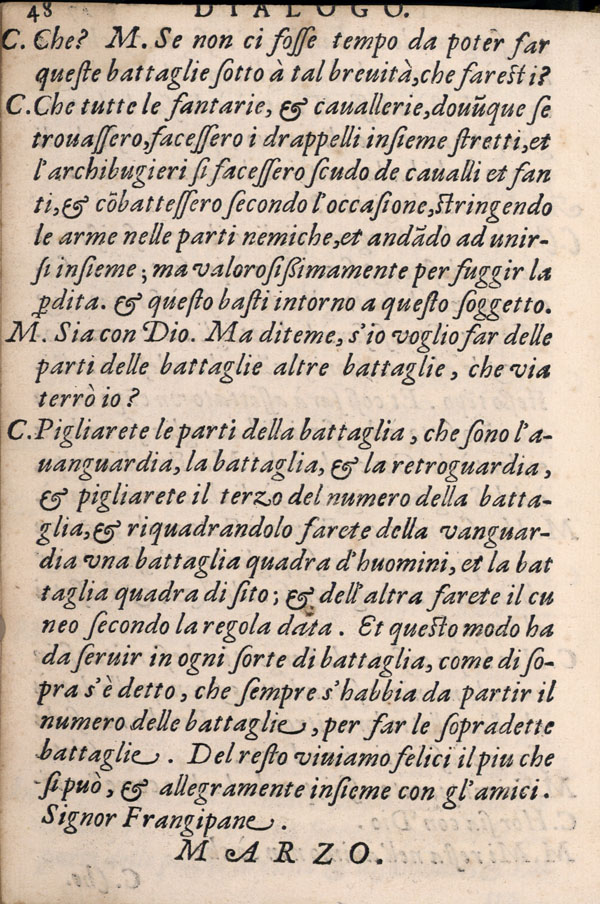 48 DIALOGO.
C. Che? M. Se non ci foſſe tempo da poter far
queſte battaglie ſotto à tal breuità, che fareſti?
C. Che tutte le fantarie, & cauallerie, douūque ſe
trouaſſero, faceſſero i drappelli inſieme ſtretti, et
l'archibugieri ſi faceſſero ſcudo de caualli et fan
ti, & cōbatteſſero ſecondo l'occaſione, ſtringendo
le arme nelle parti nemiche, et andādo ad unir-
ſi inſieme; ma valoroſiſſimamente per fuggir la
ꝑdita. & queſto baſti intorno a queſto ſoggetto.
M. Sia con Dio. Ma diteme, s'io voglio far delle
parti delle battaglie altre battaglie, che via
terrò io?
C. Pigliarete le parti della battaglia, che ſono l'a-
uanguardia, la battaglia, & la retroguardia,
& pigliarete il terzo del numero della batta-
glia, & riquadrandolo farete della vanguar-
dia vna battaglia quadra d'huomini, et la bat
taglia quadra di ſito; & dell'altra farete il cu
neo ſecondo la regola data. Et queſto modo ha
da ſeruir in ogni ſorte di battaglia, come di ſo-
pra s'è detto, che ſempre s'habbia da partir il
numero delle battaglie, per far le ſopradette
battaglie. Del reſto viuiamo felici il piu che
ſi può, & allegramente inſieme con gl'amici.
Signor Frangipane.
MARZO.